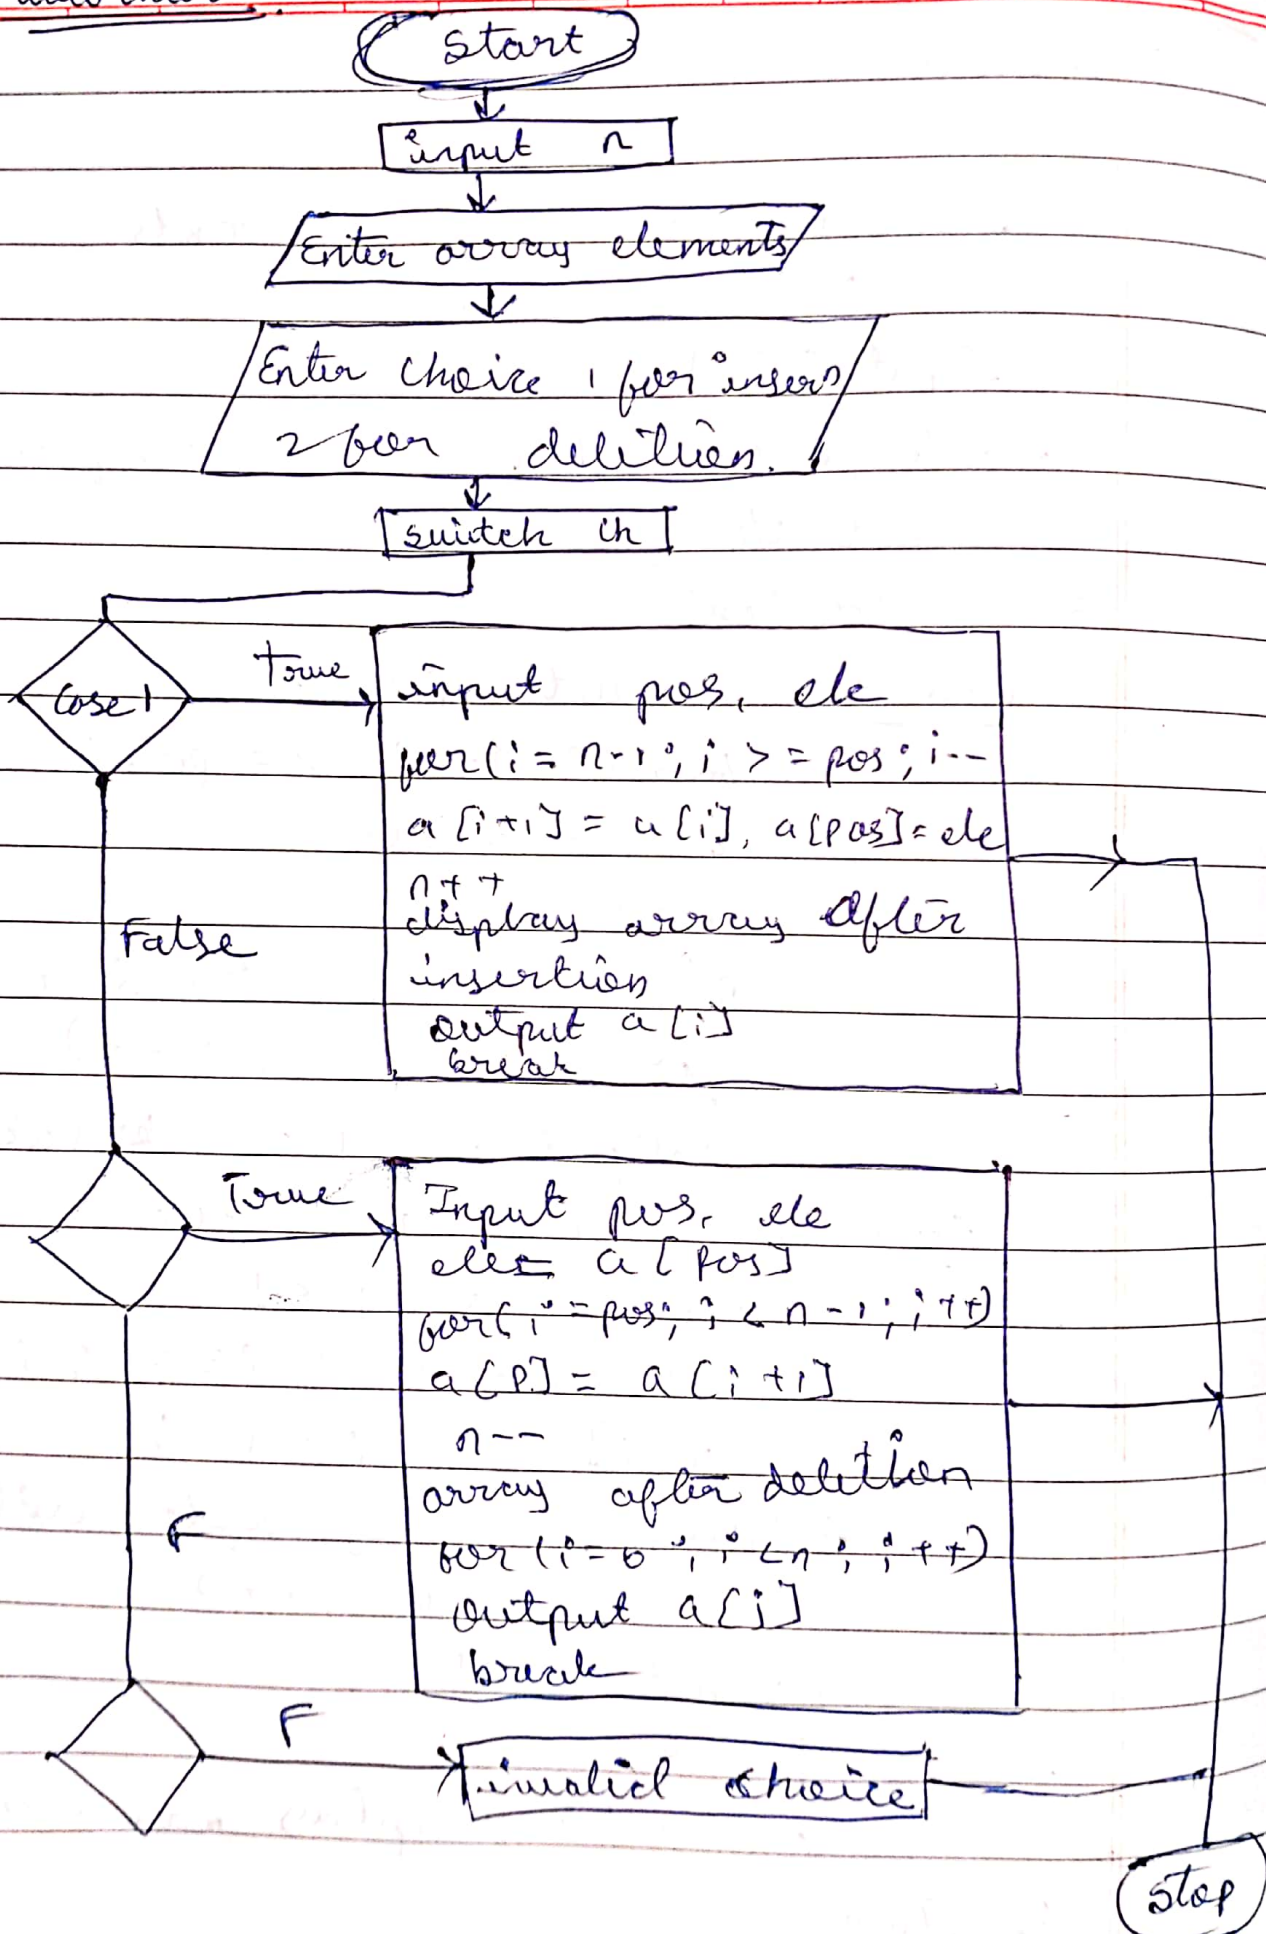 Start
input n
Enter array elements
Enter choice 1 for inser
2 for delition.
switch ch
Case 1
True
input pos, ele
for(i = n-1; i >= pos; i--
a[i+1] = a[i], a[pos]= ele
n++
display array after
insertion
output a[i]
break
False
True
Input pos, ele
ele= a[pos]
for(i=pos; i < n-1; i++)
a[P] = a[i+1]
n--
array after delition
for (i=0; i<n; i++)
output a[i]
break
F
F
invalid choice
Stop